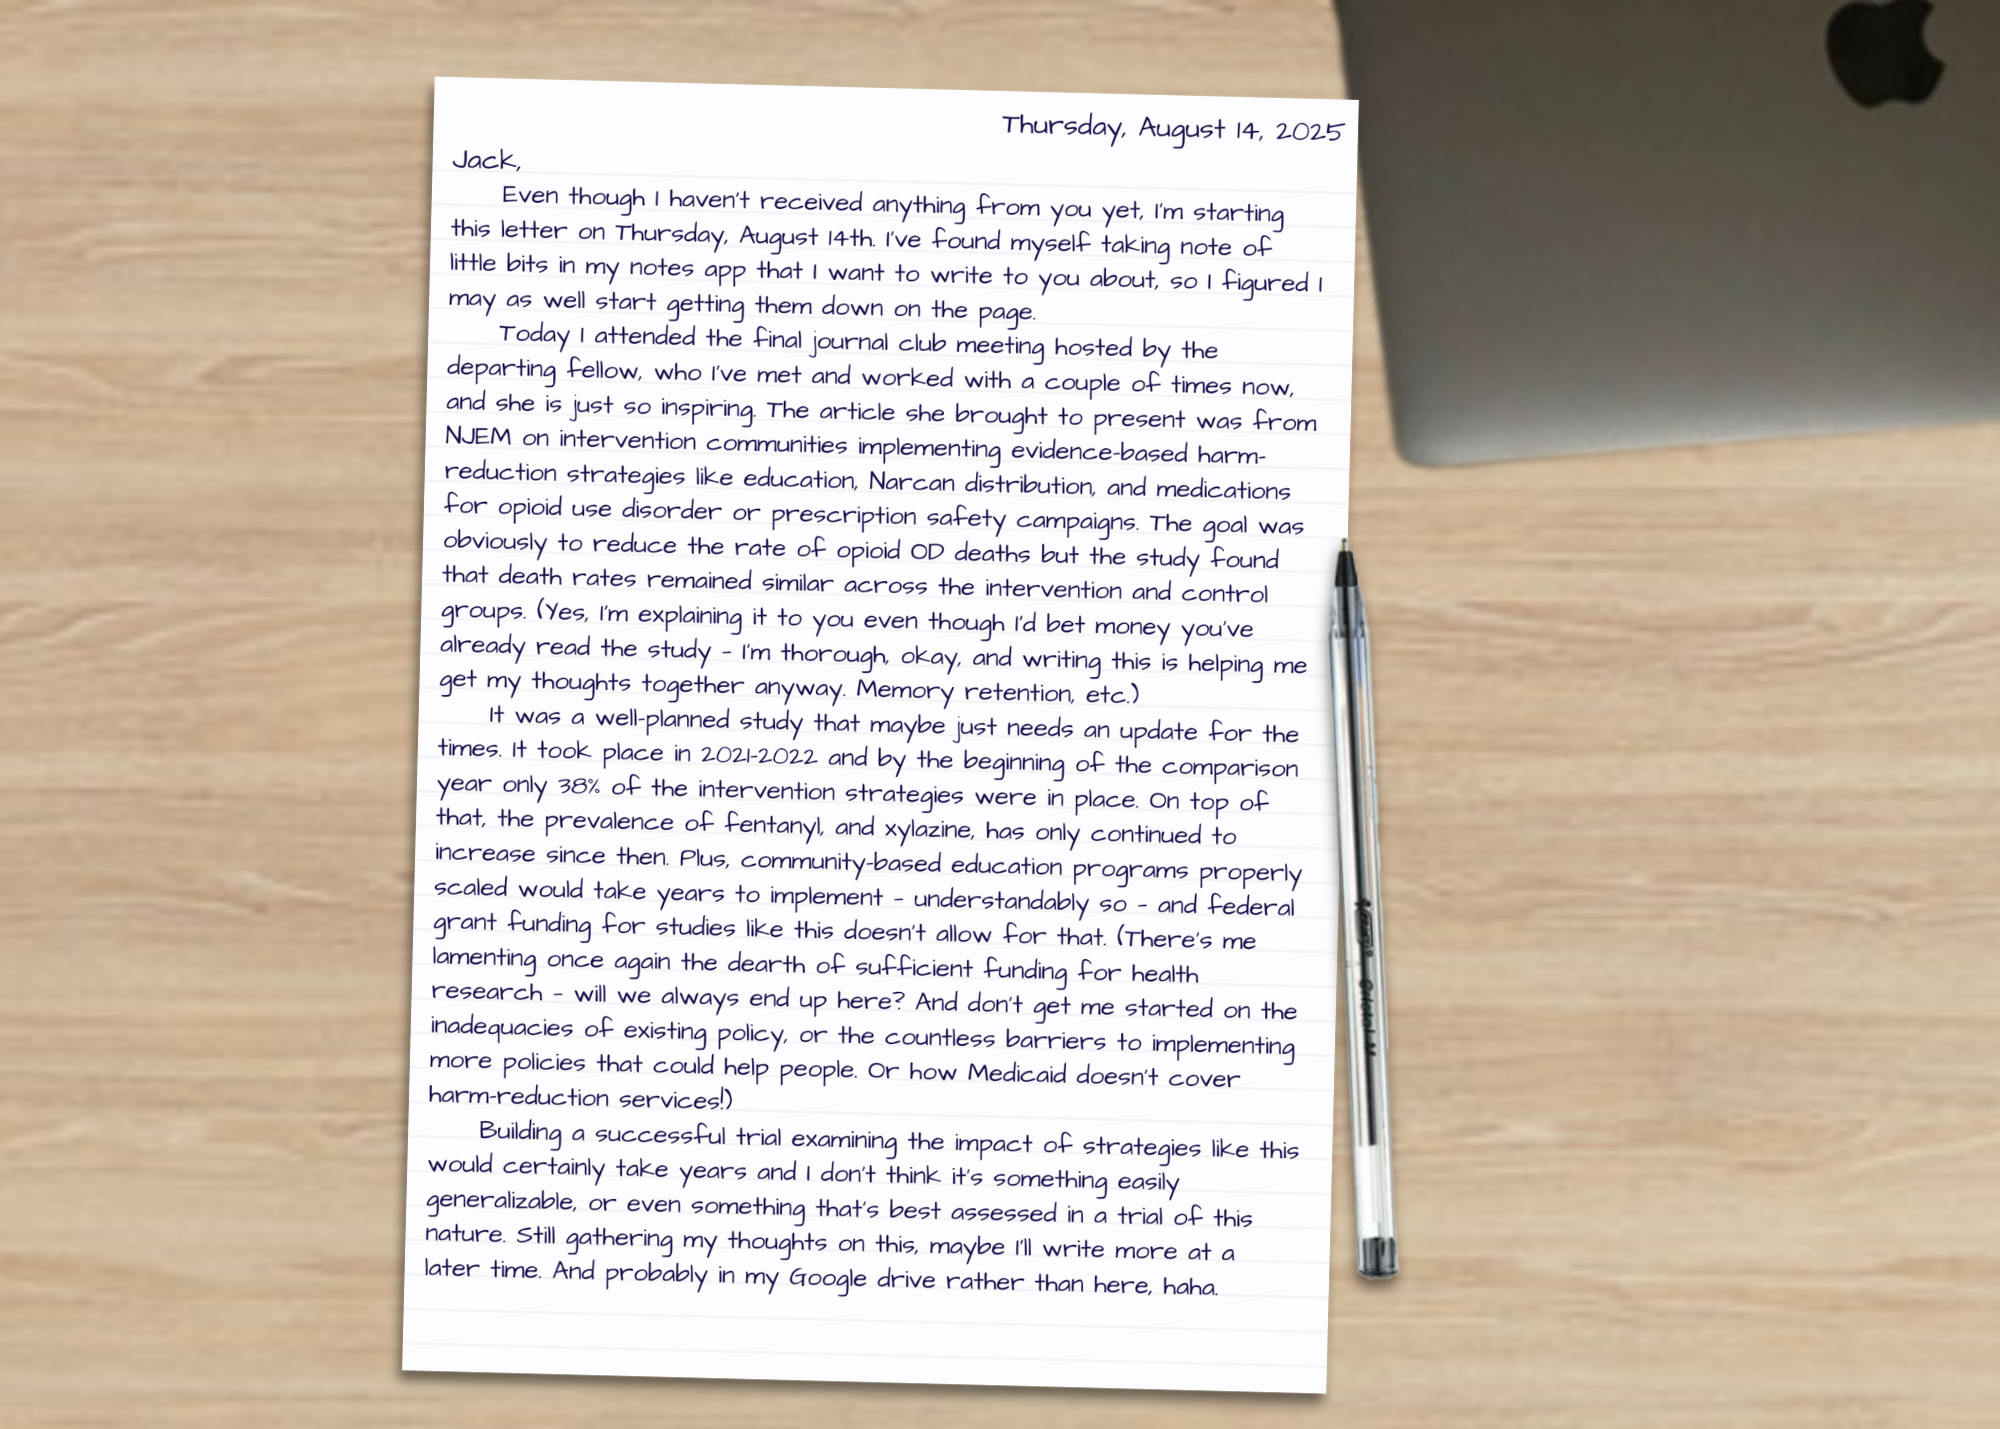 Thursday, August 14, 2025
Jack,
Even though I haven't received anything from you yet, I'm starting
this letter on Thursday, August 14th. I've found myself taking note of
little bits in my notes app that I want to write to you about, so I figured I
may as well start getting them down on the page.
Today I attended the final journal club meeting hosted by the
departing fellow, who I've met and worked with a couple of times now,
and she is just so inspiring. The article she brought to present was from
NJEM on intervention communities implementing evidence-based harm-
reduction strategies like education, Narcan distribution, and medications
for opioid use disorder or prescription safety campaigns. The goal was
obviously to reduce the rate of opioid OD deaths but the study found
that death rates remained similar across the intervention and control
groups. (Yes, I'm explaining it to you even though I'd bet money you've
already read the study - I'm thorough, okay, and writing this is helping me
get my thoughts together anyway. Memory retention, etc.)
It was a well-planned study that maybe just needs an update for the
times. It took place in 2021-2022 and by the beginning of the comparison
year only 38% of the intervention strategies were in place. On top of
that, the prevalence of fentanyl, and xylazine, has only continued to
increase since then. Plus, community-based education programs properly
scaled would take years to implement - understandably so - and federal
grant funding for studies like this doesn't allow for that. (There's me
lamenting once again the dearth of sufficient funding for health
research - will we always end up here? And don't get me started on the
inadequacies of existing policy, or the countless barriers to implementing
more policies that could help people. Or how Medicaid doesn't cover
harm-reduction services!)
Building a successful trial examining the impact of strategies like this
would certainly take years and I don't think it's something easily
generalizable, or even something that's best assessed in a trial of this
nature. Still gathering my thoughts on this, maybe I'll write more at a
later time. And probably in my Google drive rather than here, haha.